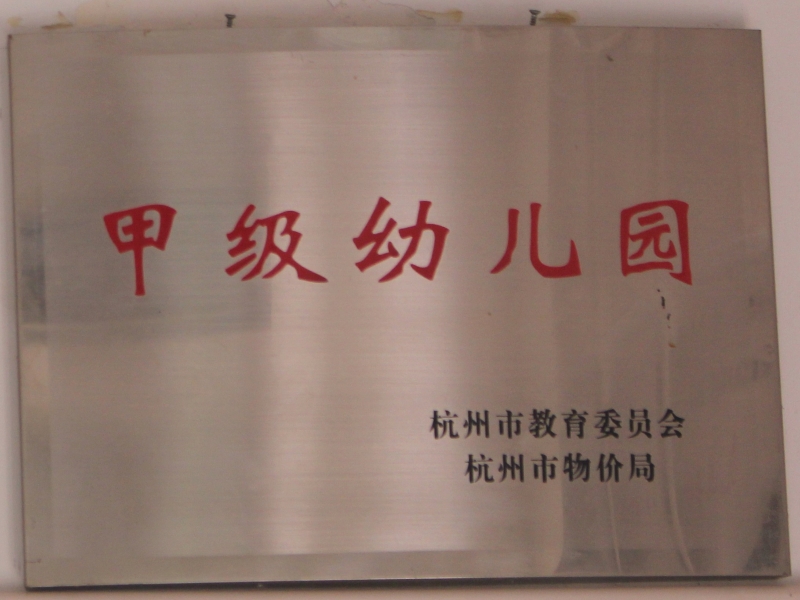 甲级幼儿园
杭州市教育委员会
杭州市物价局